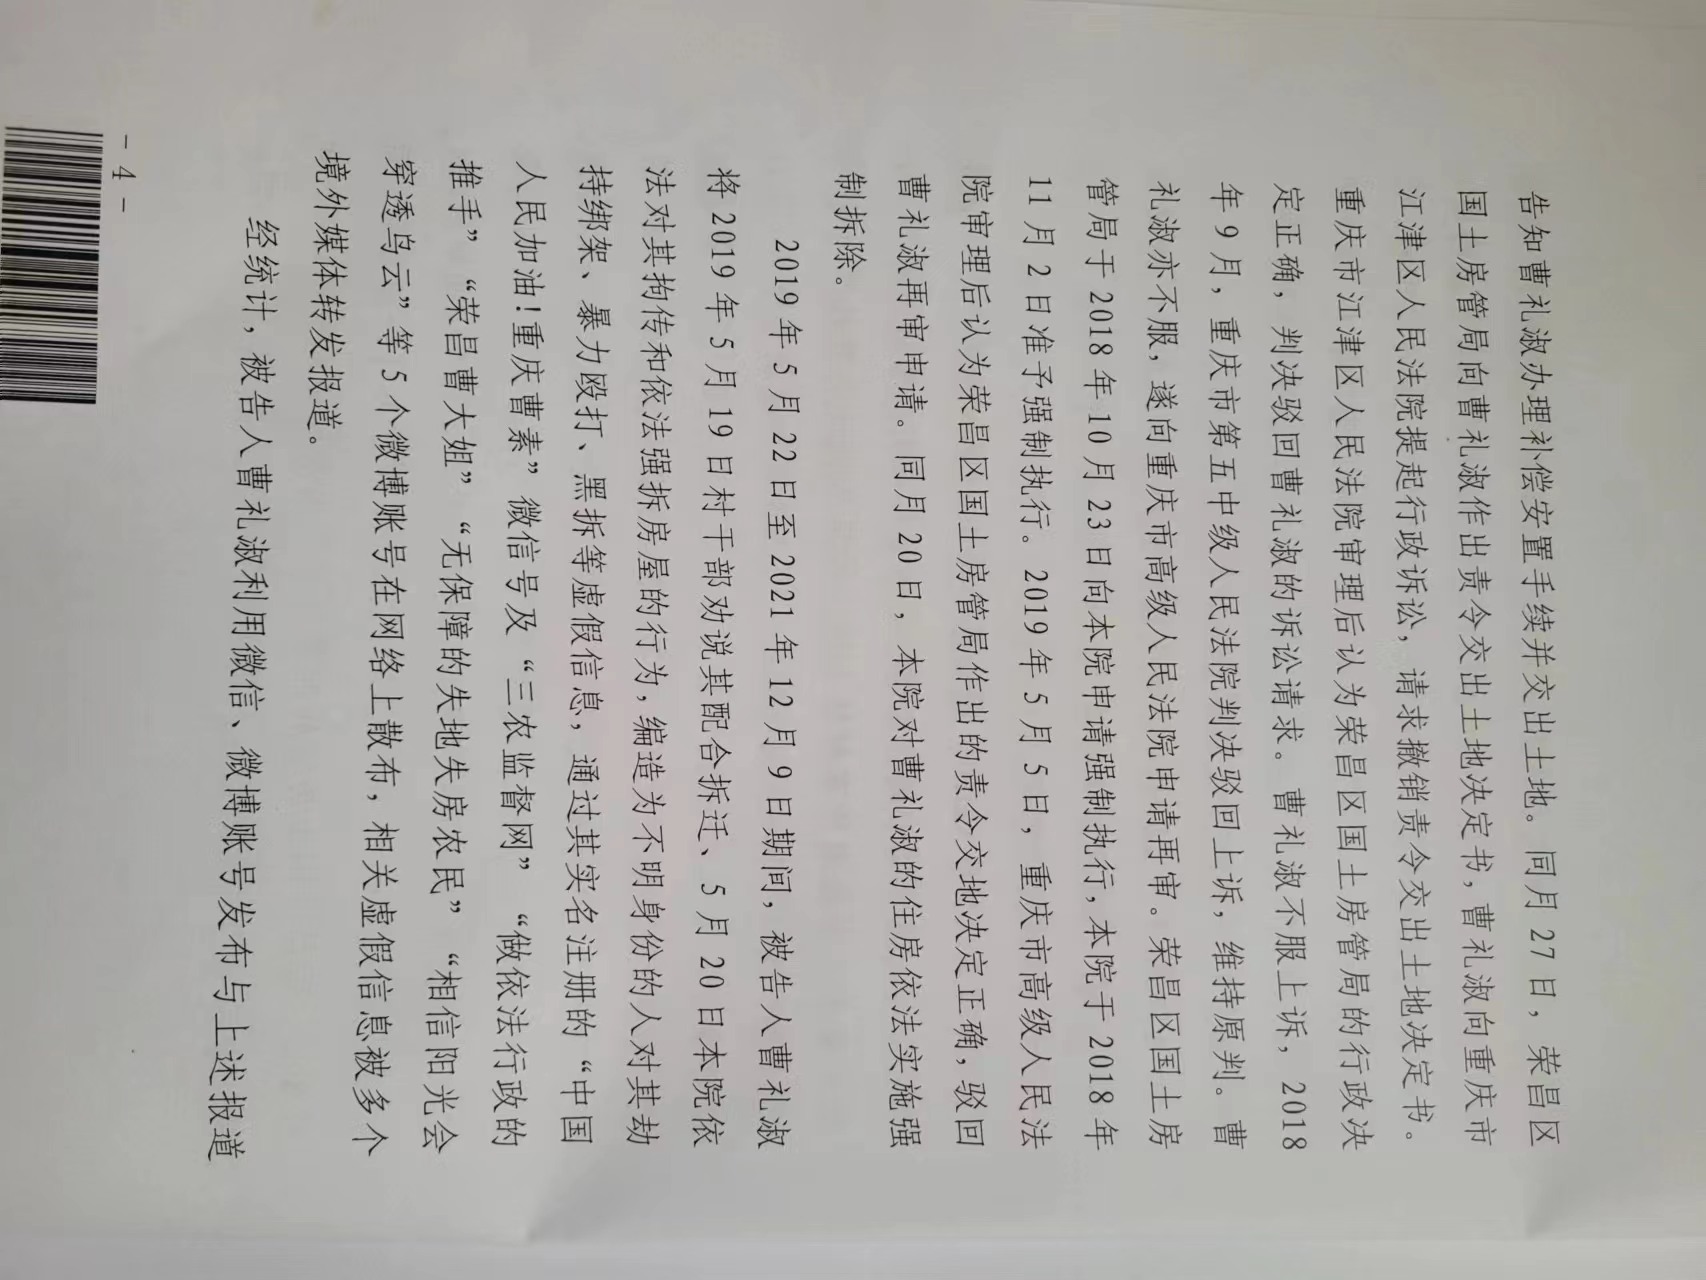 告知曹礼淑办理补偿安置手续并交出土地。同月 27 日，荣昌区
国土房管局向曹礼淑作出责令交出土地决定书，曹礼淑向重庆市
江津区人民法院提起行政诉讼，请求撤销责令交出土地决定书。
重庆市江津区人民法院审理后认为荣昌区国土房管局的行政决
定正确，判决驳回曹礼淑的诉讼请求。曹礼淑不服上诉，2018
年 9 月，重庆市第五中级人民法院判决驳回上诉，维持原判。曹
礼淑亦不服，遂向重庆市高级人民法院申请再审。荣昌区国土房
管局于 2018 年 10 月 23 日向本院申请强制执行，本院于 2018 年
11 月 2 日准予强制执行。2019 年 5 月 5 日，重庆市高级人民法
院审理后认为荣昌区国土房管局作出的责令交地决定正确，驳回
曹礼淑再审申请。同月 20 日，本院对曹礼淑的住房依法实施强
制拆除。
2019 年 5 月 22 日至 2021 年 12 月 9 日期间，被告人曹礼淑
将 2019 年 5 月 19 日村干部劝说其配合拆迁、5 月 20 日本院依
法对其拘传和依法强拆房屋的行为，编造为不明身份的人对其劫
持绑架、暴力殴打、黑拆等虚假信息，通过其实名注册的“中国
人民加油！重庆曹素”微信号及“三农监督网”“做依法行政的
推手”“荣昌曹大姐”“无保障的失地失房农民”“相信阳光会
穿透乌云”等 5 个微博账号在网络上散布，相关虚假信息被多个
境外媒体转发报道。
经统计，被告人曹礼淑利用微信、微博账号发布与上述报道
- 4 -